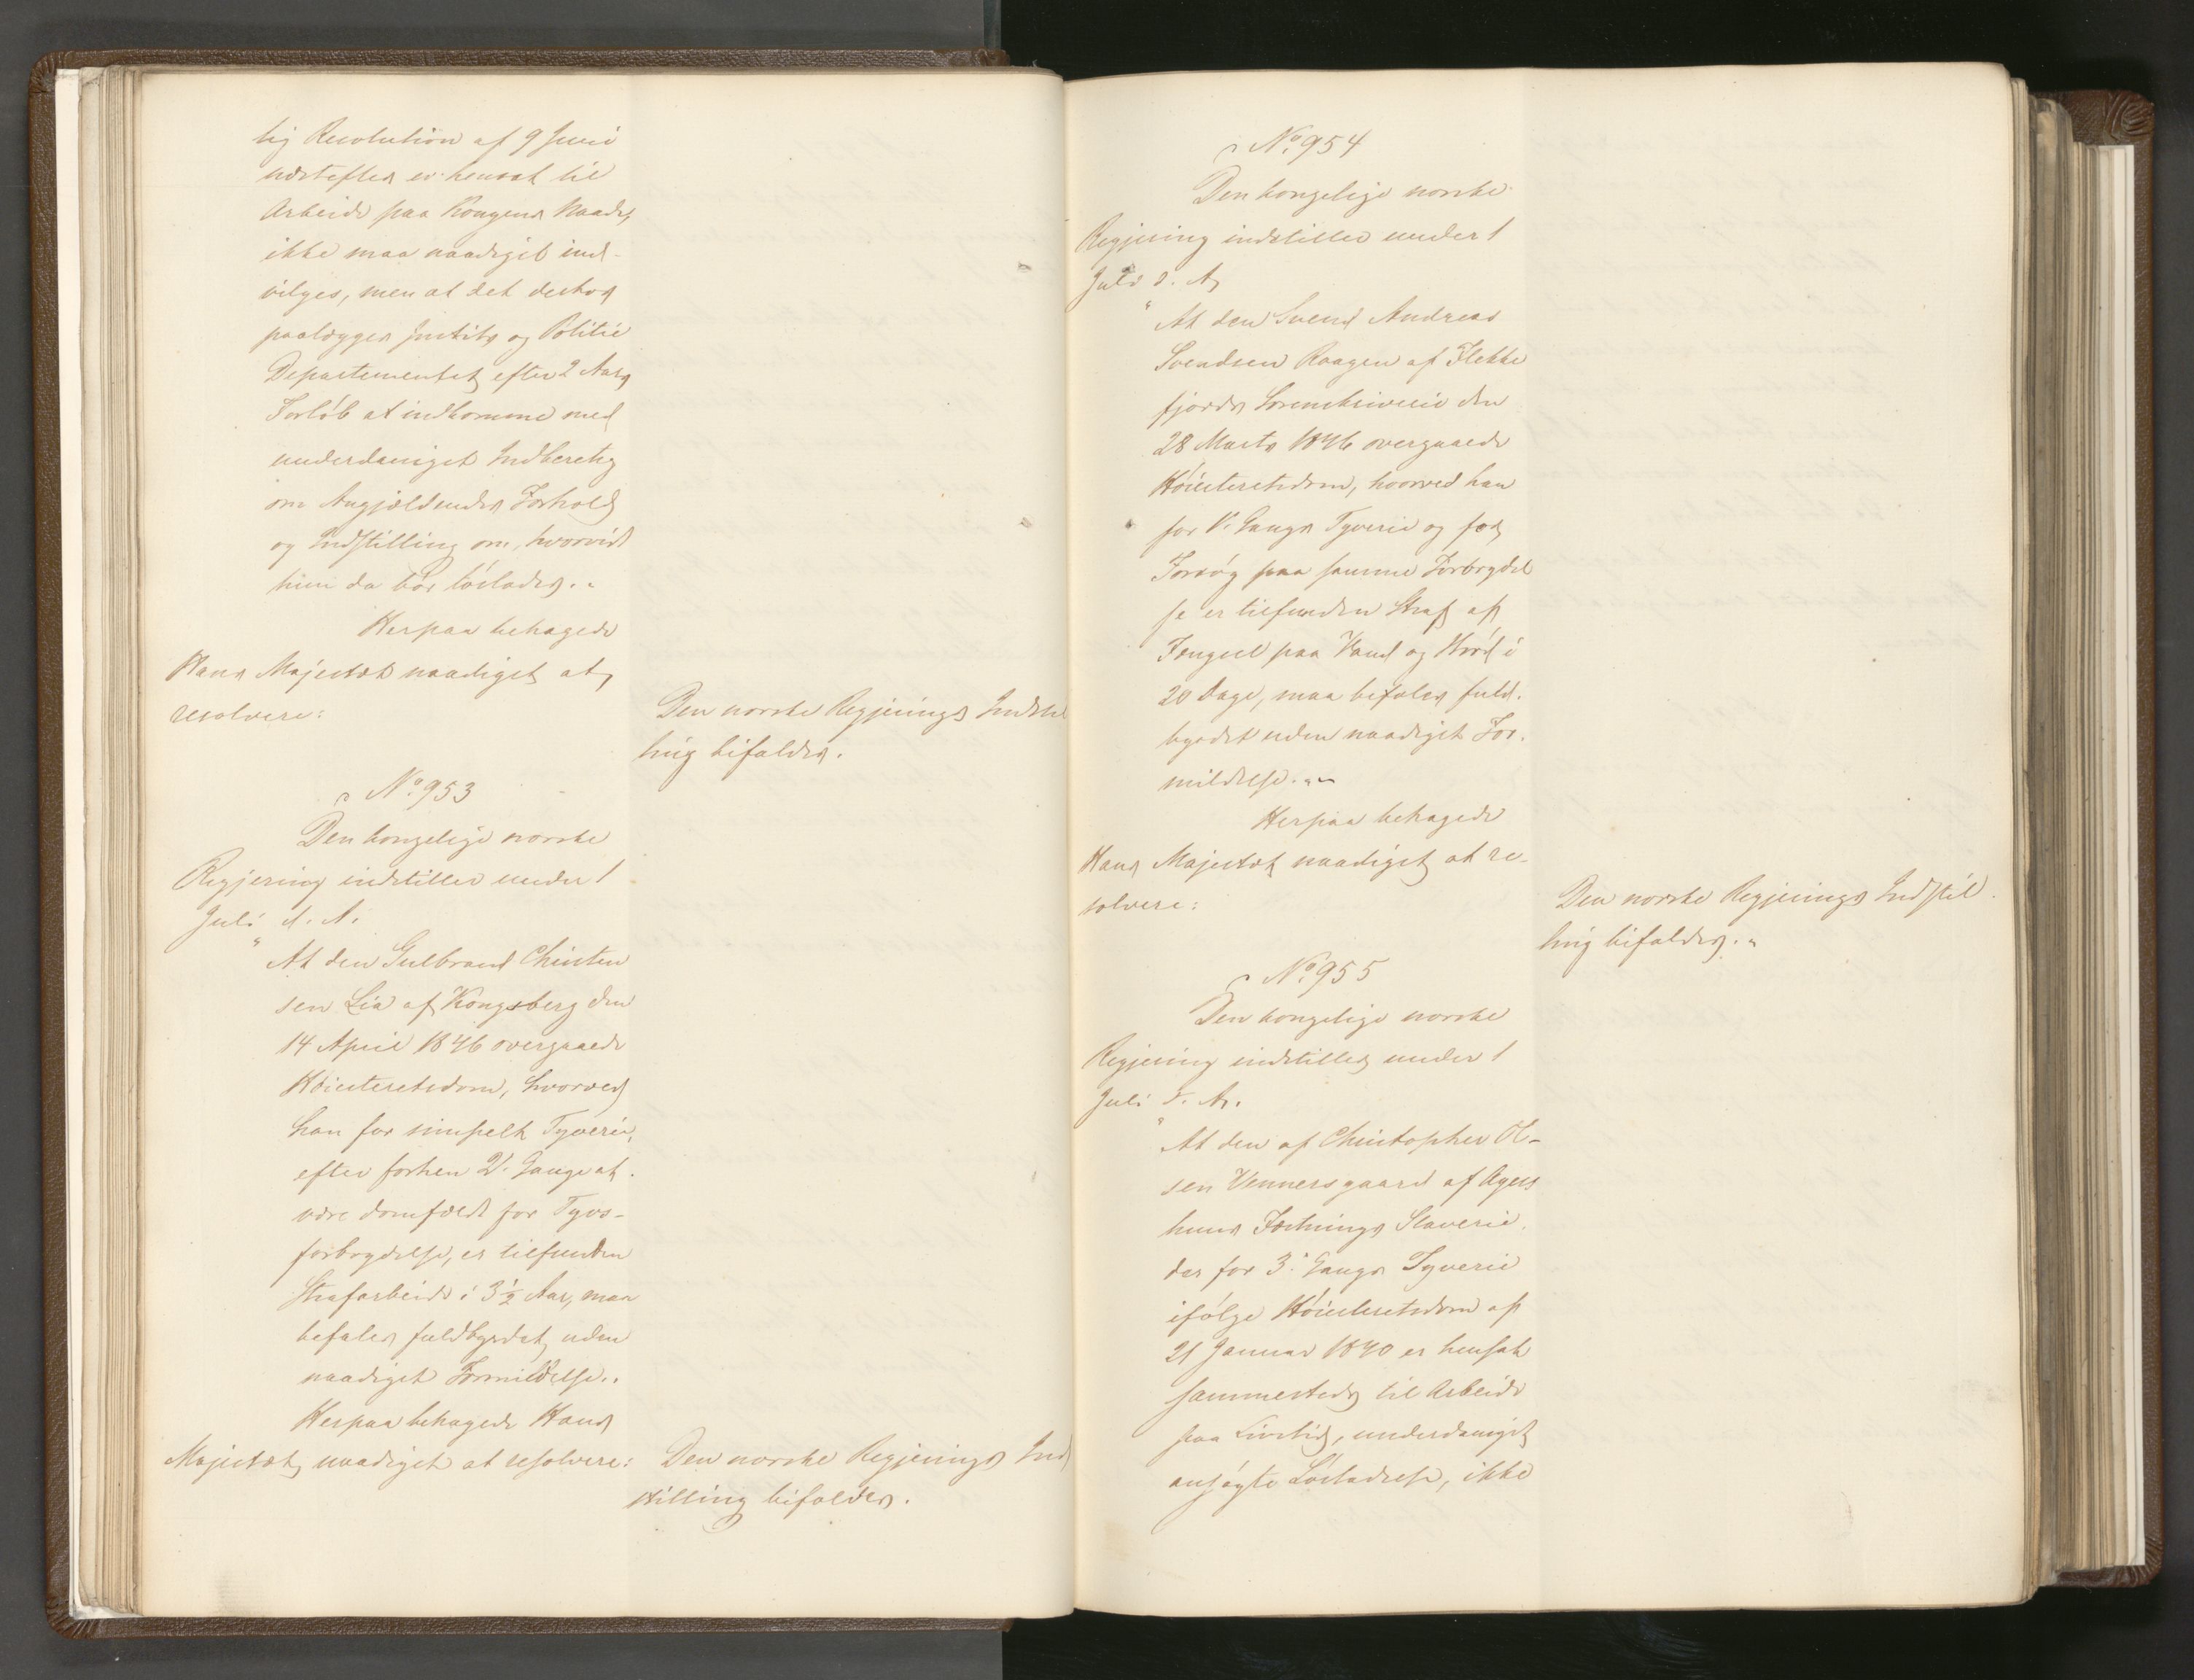 lig Resolution af 9 Juni
næstefter er hensat til
Arbeide paa Kongens Naade,
ikke maa naadigst ind-
vilges, men at det derhos
paalægges Justits og Politie
Departementet efter 2 Aars
Forløb at indkomme med
underdanigst Indberetng
om Angjældendes Forhold
og Indstilling om, hvorvidt
hun da bør løslades. "
Herpaa behagede
Hans Majestæt naadigst at
resolvere:
Den norske Regjerings Indstil
ling bifaldes.
No. 953
Den kongelige norske
Regjering indstiller under 1
Juli d. A.
" At den Gulbrand Christen
sen Lia af Kongsberg den
14 April 1846 overgaaede
Høiesteretsdom, hvorved
han for simpelt Tyverie,
efter forhen 2. Gange at
være domfældt for Tyvs-
forbrydelse, er tilfunden
Strafarbeide i 3½ Aar, maa
befales fuldbyrdet uden
naadigst Formildelse. "
Herpaa behagede Hans
Majestæt naadigst at resolvere:
Den norske Regjerings Ind
stilling bifaldes.
No. 954
Den kongelige norske
Regjering indstiller under 1
Juli d. A.
" At den Svend Andreas
Svendsen Raagen af Flekke
fjords Sorenskriverie den
28 Marts 1846 overgaaede
Høiesteretsdom, hvorved han
for V. Gangs Tyverie og for
Forsøg paa samme Forbrydel
se er tilfunden Straf af
Fængsel paa Vand og Brød i
20 Dage, maa befales fuld-
byrdet uden naadigst For-
mildelse. "
Herpaa behagede
Hans Majestæt naadigst at re-
solvere:
Den norske Regjerings Indstil
ling bifaldes. "
No. 955
Den kongelige norske
Regjering indstiller under 1
Juli d. A.
" At den af Christopher Ol-
sen Vennersgaard af Agers
huus Fæstnings Slaverie,
der for 3. Gangs Tyverie
ifølge Høiesteretsdom af
21 Januar 1840 er hensat
sammesteds til Arbeide
paa Livstid, underdanigst
ansøgte Løsladelse, ikke